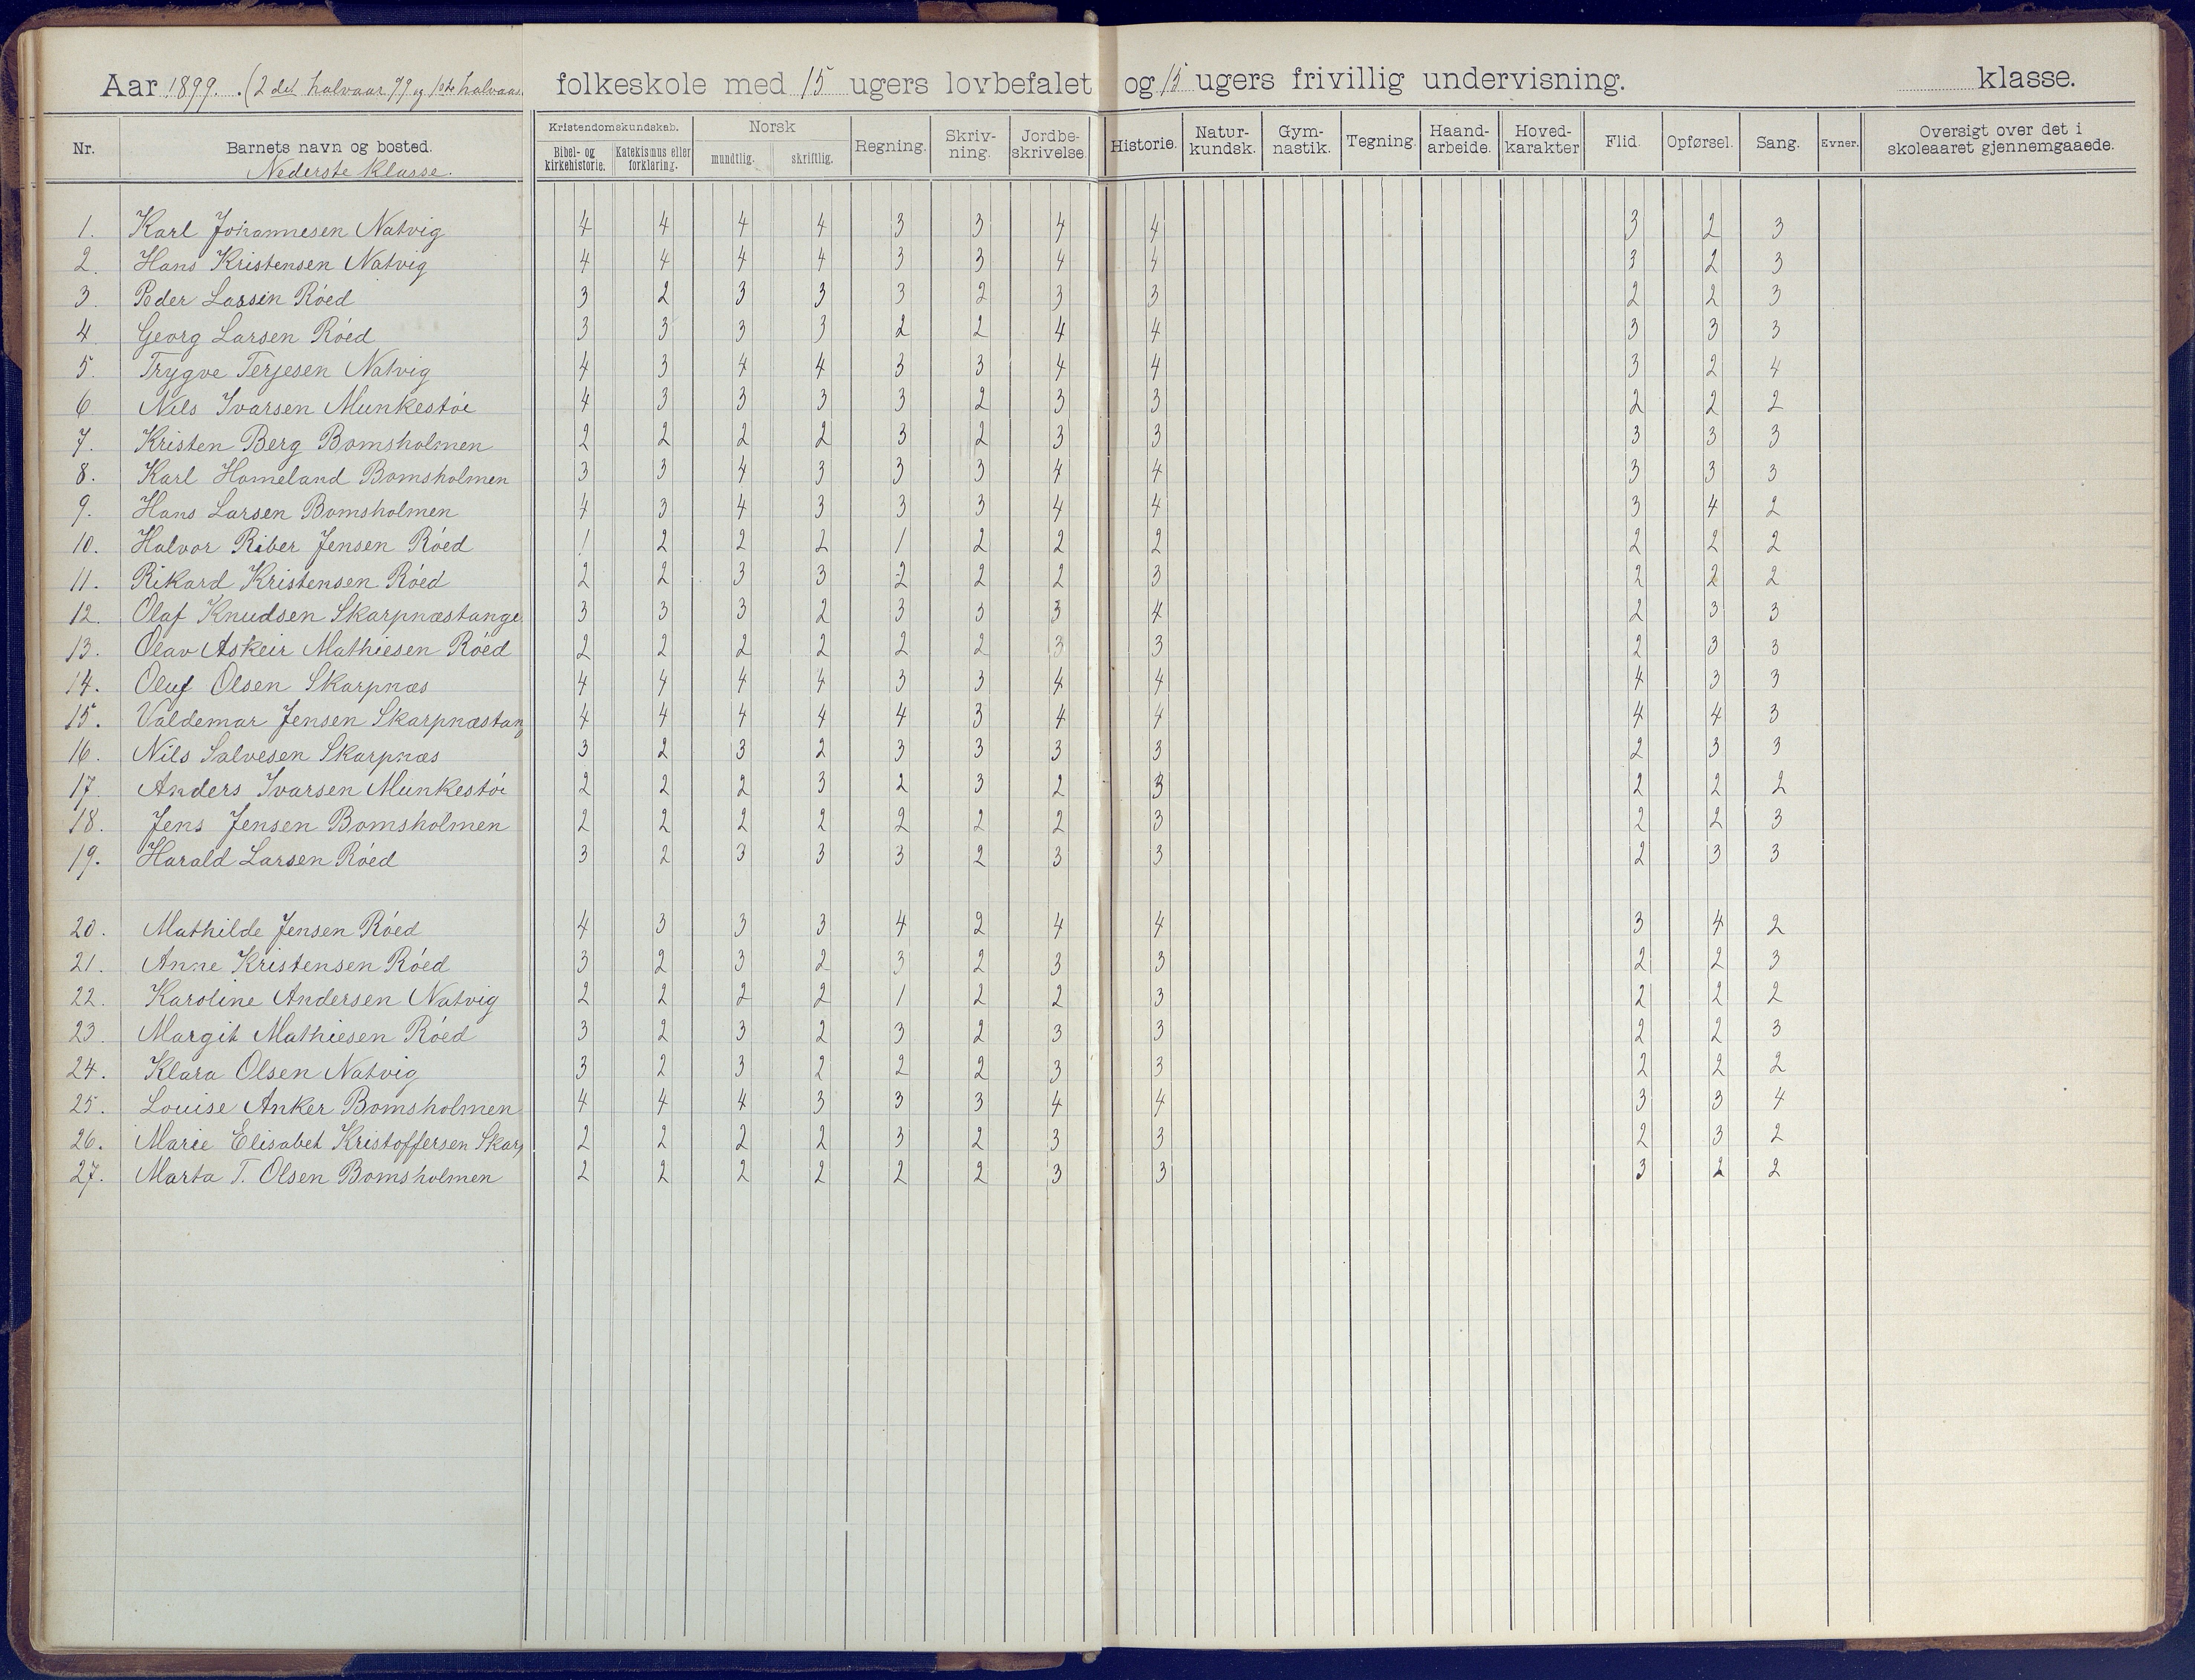 Aar 1899. (2det halvaar 99 og 1ste halvaar folkeskole med 15 ugers lovbefalet og 15 ugers frivillig undervisning. klasse.
Nr. Barnets navn og bosted. Kristendomskundskab. Norsk Regning. Skriv- Jordbe- Historie. Natur- Gym- Tegning. Haand- Hoved- Flid. Opførsel. Sang. Evner. Oversigt over det i
Nederste klasse. Bibel- og Katekismus eller mundtlig. skriftlig. ning. skrivelse. kundsk. nastik. arbeide. karakter skoleaaret gjennemgaaede.
kirkehistorie. forklaring.
1. Karl Johannesen Natvig 4 4 4 4 3 3 4 4 3 2 3
2. Hans Kristensen Natvig 4 4 4 4 3 3 4 4 3 2 3
3. Peder Lassen Röed 3 2 3 3 3 2 3 3 2 2 3
4 Georg Larsen Röed 3 3 3 3 2 2 4 4 3 3 3
5. Trygve Terjesen Natvig 4 3 4 4 3 3 4 4 3 2 4
6 Nils Ivarsen Munkestöi 4 3 3 3 3 2 3 3 2 2 2
7. Kristen Berg Bomsholmen 2 2 2 2 3 2 3 3 3 3 3
8. Karl Homeland Bomsholmen 3 3 4 3 3 3 4 4 3 3 3
9. Hans Larsen Bomsholmen 4 3 4 3 3 3 4 4 3 4 2
10. Halvor Riber Jensen Röed 1 2 2 2 1 2 2 2 2 2 2
11. Rikard Kristensen Röed 2 2 3 3 2 2 2 3 2 2 2
12. Olaf Knudsen Skarpnæstange 3 3 3 2 3 3 3 4 2 3 3
13. Olav Askeir Mathiesen Röed 2 2 2 2 2 2 3 3 2 3 3
14. Oluf Olsen Skarpnæs 4 4 4 4 3 3 4 4 4 3 3
15. Valdemar Jensen Skarpnæstang 4 4 4 4 4 3 4 4 4 4 3
16. Nils Salvesen Skarpnæs 3 2 3 2 3 3 3 3 2 3 3
17. Anders Ivarsen Munkestöi 2 2 2 3 2 3 2 3 2 2 2
18. Jens Jensen Bomsholmen 2 2 2 2 2 2 2 3 2 2 3
19. Harald Larsen Röed 3 2 3 3 3 2 3 3 2 3 3
20. Mathilde Jensen Röed 4 3 3 3 4 2 4 4 3 4 2
21. Anne Kristensen Röed 3 2 3 2 3 2 3 3 2 2 3
22. Karoline Andersen Natvig 2 2 2 2 1 2 2 3 2 2 2
23. Margit Mathiesen Röed 3 2 3 2 3 2 3 3 2 2 3
24. Klara Olsen Natvig 3 2 3 2 2 2 3 3 2 2 2
25. Louise Anker Bomsholmen 4 4 4 3 3 3 4 4 3 3 4
26. Marie Elisabet Kristoffersen Skarp 2 2 2 2 3 2 3 3 2 3 2
27. Marta T. Olsen Bomsholmen 2 2 2 2 2 2 3 3 3 2 2